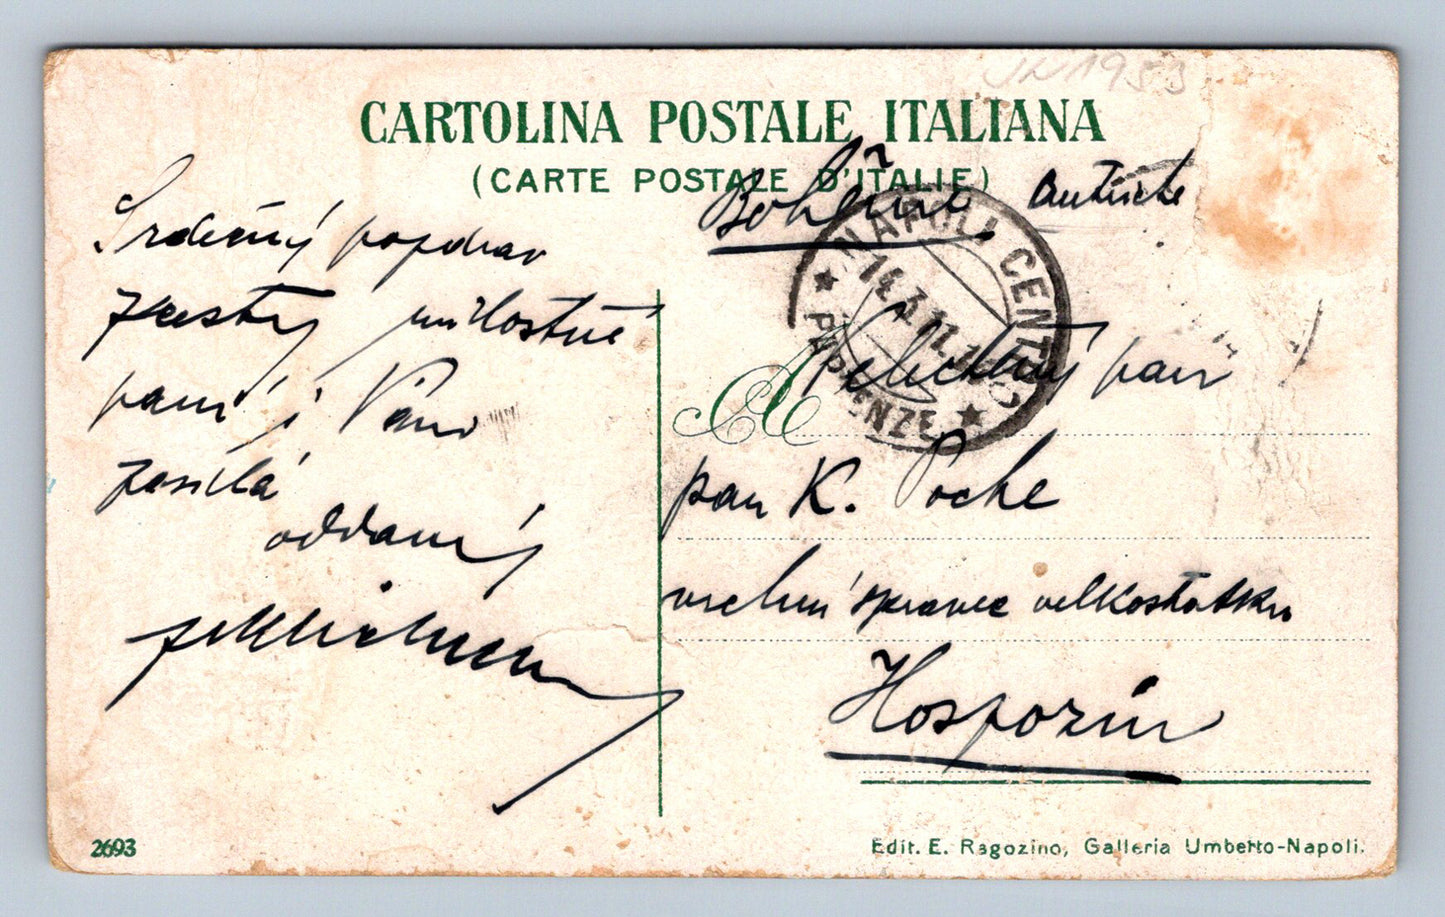 CARTOLINA POSTALE ITALIANA
(CARTE POSTALE D'ITALIE)
Srdečný pozdrav
milostné
paní i Pánu
zasílá
oddaný
Bohême
NAPOLI CENTRO
14.3.11
PARTENZE
A
Velectěný pan
pan K. Poche
vrchní správce velkostatku
Hospozín
2693
Edit. E. Ragozino, Galleria Umberto-Napoli.